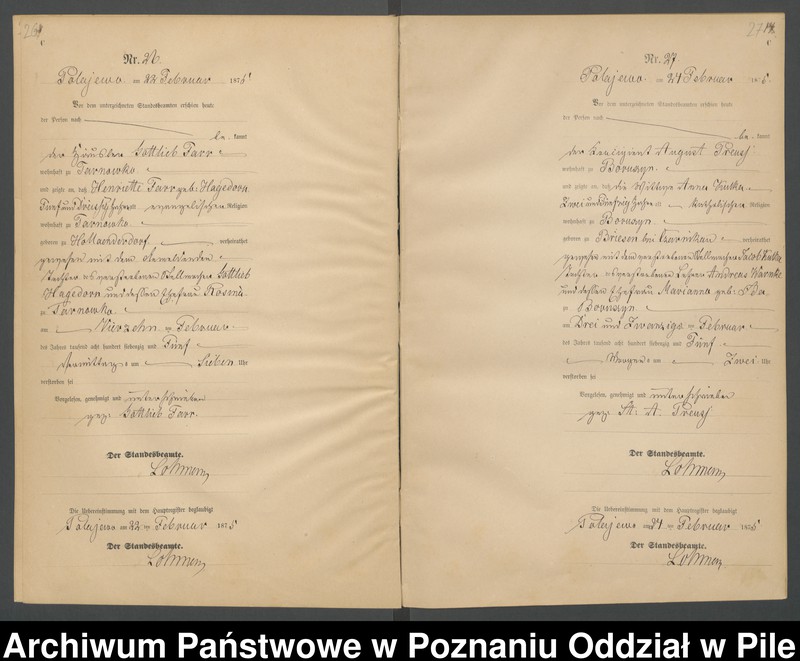 Nr. 26
Polajewo am 22 Februar 1875
Vor dem unterzeichneten Standesbeamten erschien heute
der Person nach
be kannt
der Häusler Gottlieb Farr
wohnhaft zu Tarnowko
und zeigte an, daß Henriette Farr geb: Hagedorn
Fünf und Dreißig Jahre evangelischer Religion
wohnhaft zu Tarnowko
geboren zu verheirathet
gewesen mit dem Anmeldenden
Tochter des verstorbenen Gottlieb
Hagedorn und dessen Ehefrau Rosina
zu Tarnowko
am Vierzehn ten Februar
des Jahres tausend acht hundert siebenzig und Fünf
Vormittags um Sieben Uhr
verstorben sei
Vorgelesen, genehmigt und unterschrieben
gez: Gottlieb Farr.
Der Standesbeamte.
Die Uebereinstimmung mit dem Hauptregister beglaubigt
Polajewo am 22 ten Februar 1875
Der Standesbeamte.
Nr. 27
Polajewo am 24 Februar 1875
Vor dem unterzeichneten Standesbeamten erschien heute
der Person nach
be kannt
der August Preuß
wohnhaft zu Boruszyn
und zeigte an, daß die Wittwe Anna
Zwei und Jahre katholischer Religion
wohnhaft zu Boruszyn
geboren zu Briesen bei Czarnikau verheirathet
gewesen mit dem verstorbenen Jacob
Tochter des verstorbenen Andreas Warnke
und dessen Ehefrau Marianna geb:
zu Boruszyn
am Drei und Zwanzigs ten Februar
des Jahres tausend acht hundert siebenzig und Fünf
Morgens um Zwei Uhr
verstorben sei
Vorgelesen, genehmigt und unterschrieben
gez: A: Preuß
Der Standesbeamte.
Die Uebereinstimmung mit dem Hauptregister beglaubigt
Polajewo am 24 ten Februar 1875
Der Standesbeamte.
Archiwum Państwowe w Poznaniu Oddział w Pile